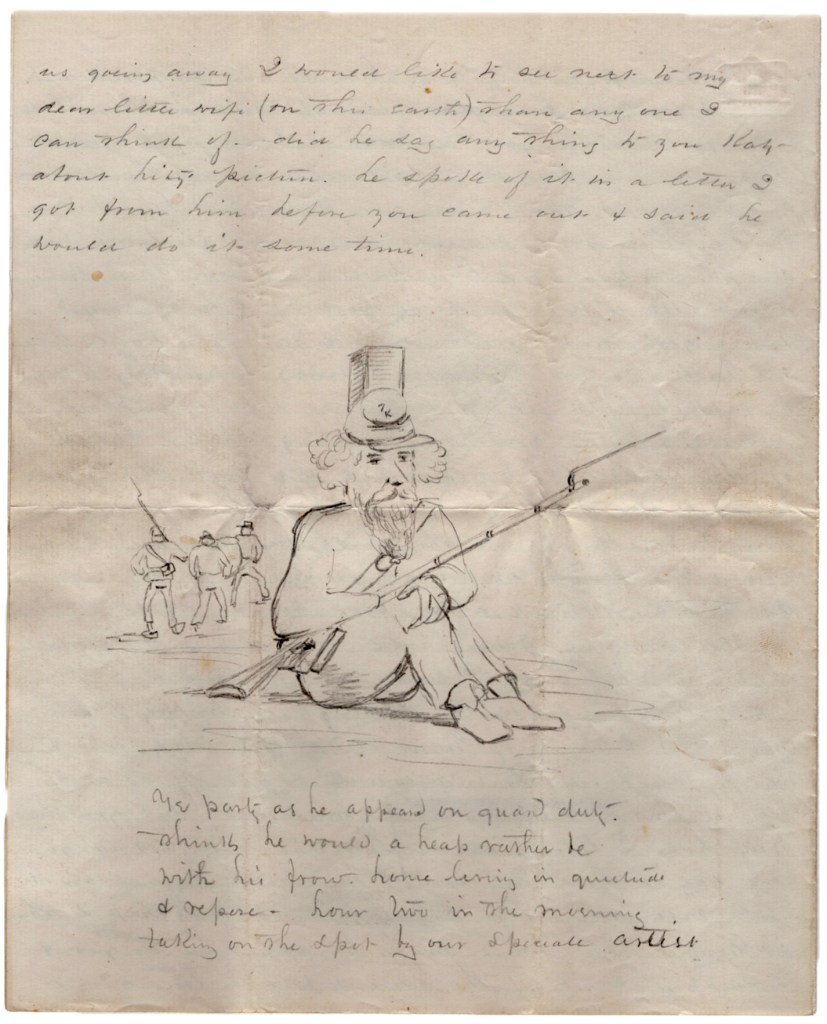 us going away I would like to see next to my
dear little wife (on this earth) than any one I
can think of. did he say any thing to you Kate
about his picture. he spoke of it in a letter I
got from him before you came out & said he
would do it some time.
7
K
Ye party as he appeard on guard duty.
thinks he would a heap rather be
with his frow. home living in quietude
& repose - hour two in the morning
taking on the spot by our speciale artist